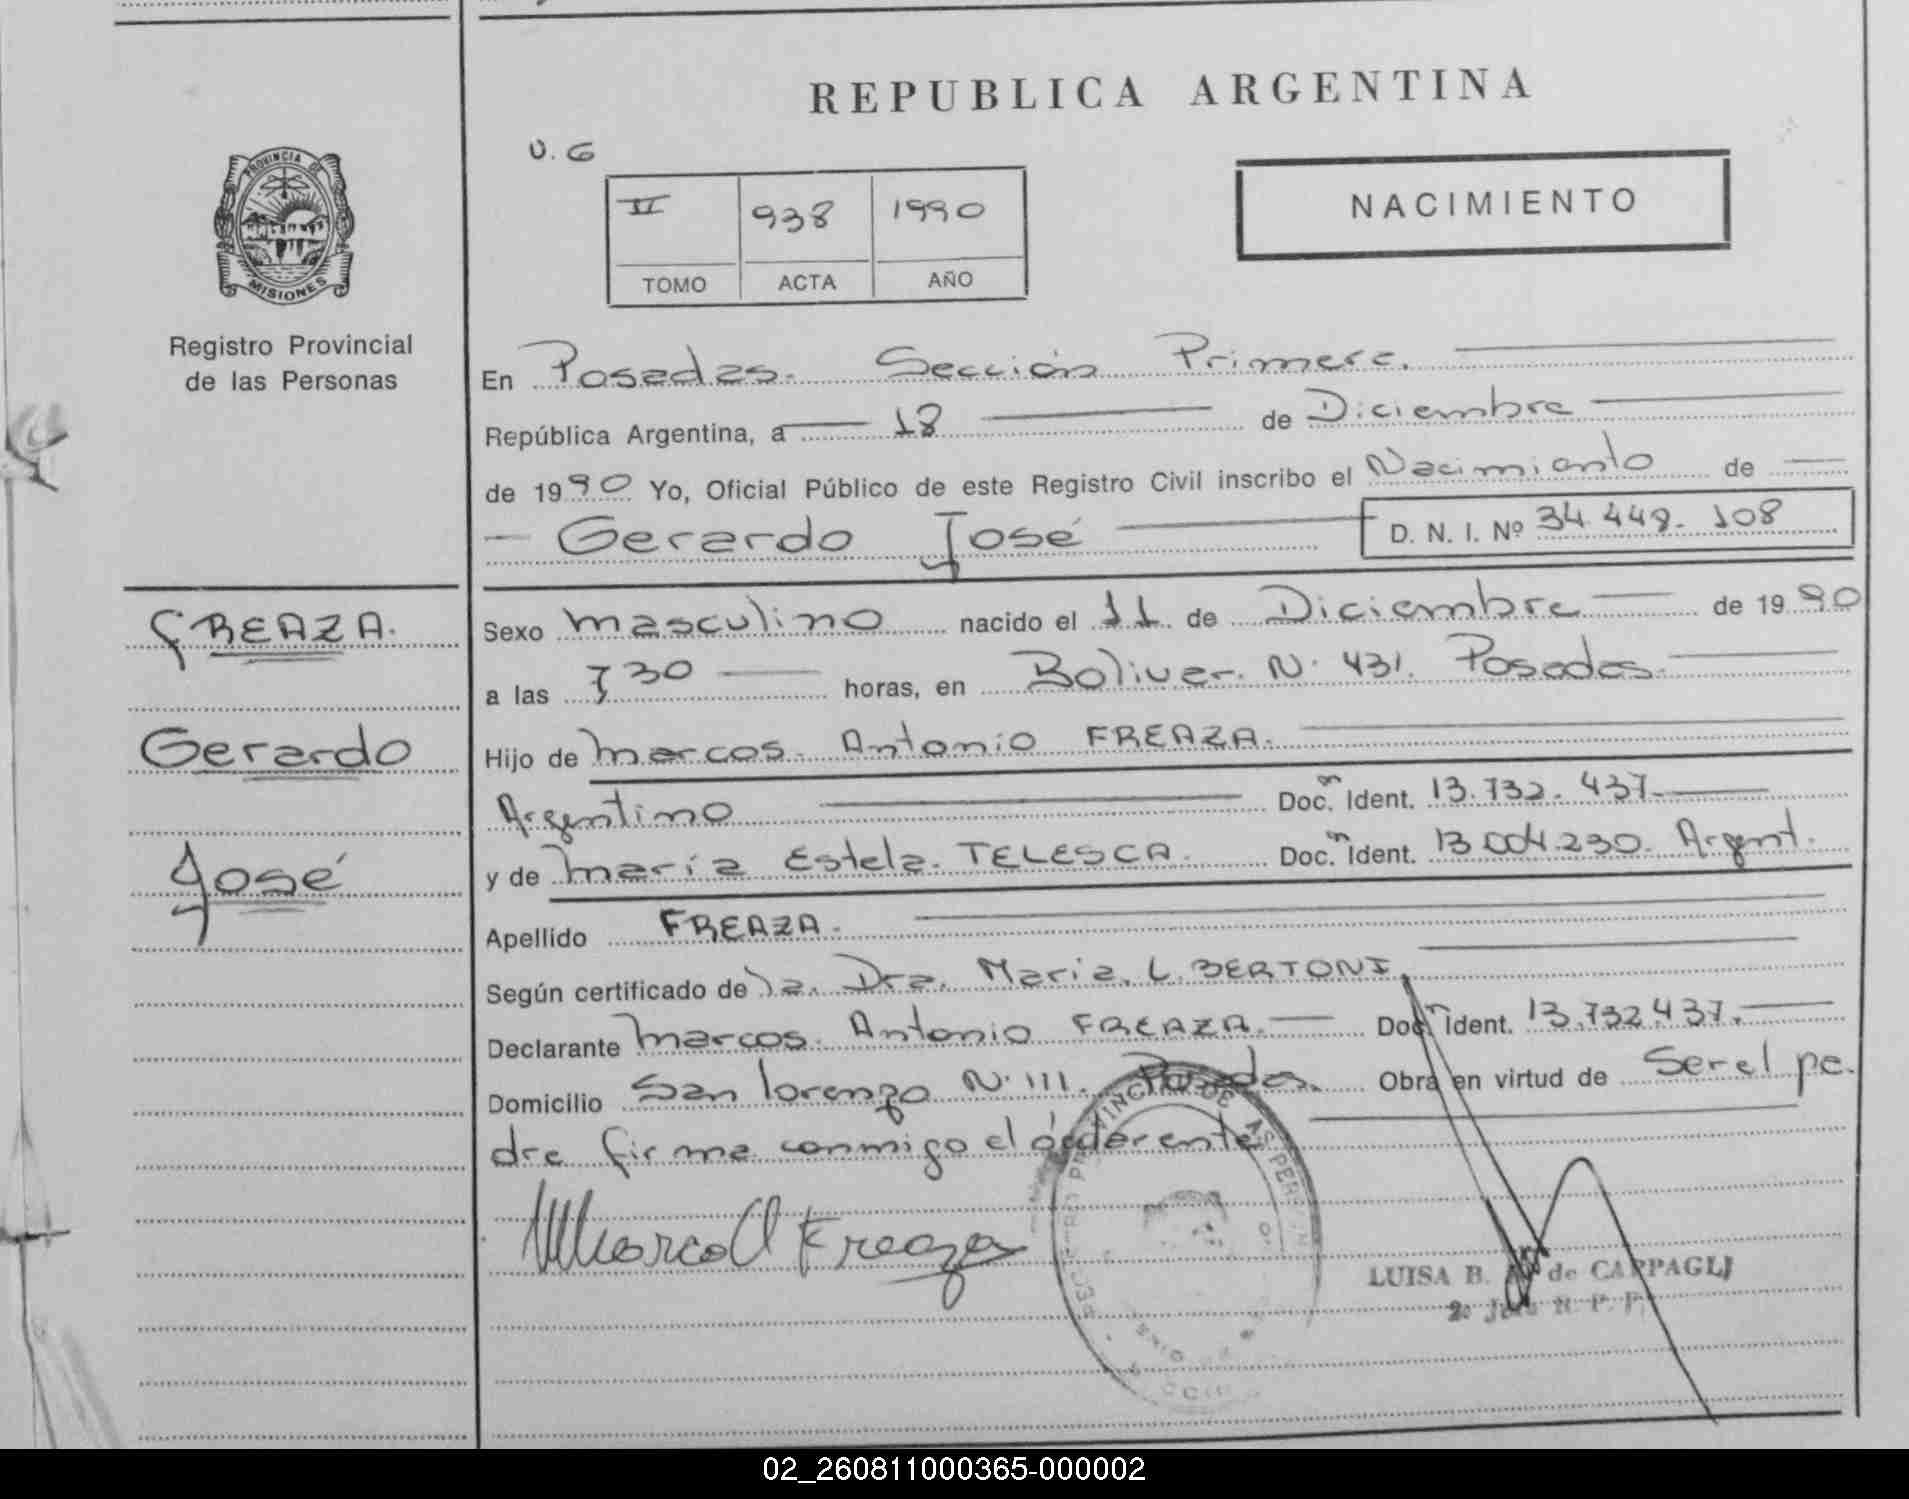 REPUBLICA ARGENTINA
U. G
II 938 1990
TOMO ACTA AÑO
NACIMIENTO
PROVINCIA DE
MISIONES
Registro Provincial
de las Personas
En Posadas. Sección Primera.
República Argentina, a 18 de Diciembre
de 1990 Yo, Oficial Público de este Registro Civil inscribo el Nacimiento de
Gerardo José
D. N. I. Nº 34.449.108
FREAZA.
Gerardo
José
Sexo masculino nacido el 11 de Diciembre de 1990
a las 7 30 horas, en Bolivar. N. 431. Posadas.
Hijo de Marcos. Antonio FREAZA.
Argentino Doc. Ident. 13.732.437.
y de María Estela. TELESCA. Doc. Ident. 13.004.230. Argent.
Apellido FREAZA.
Según certificado de la. Dra. Maria. L. BERTONI.
Declarante Marcos. Antonio FREAZA. Doc. Ident. 13.732.437.
Domicilio San Lorenzo N. 111. Posadas. Obra en virtud de Ser el pa.
dre firma conmigo el
Marcos A Freaza
LUISA B. de CAPPAGLI
02_260811000365-000002